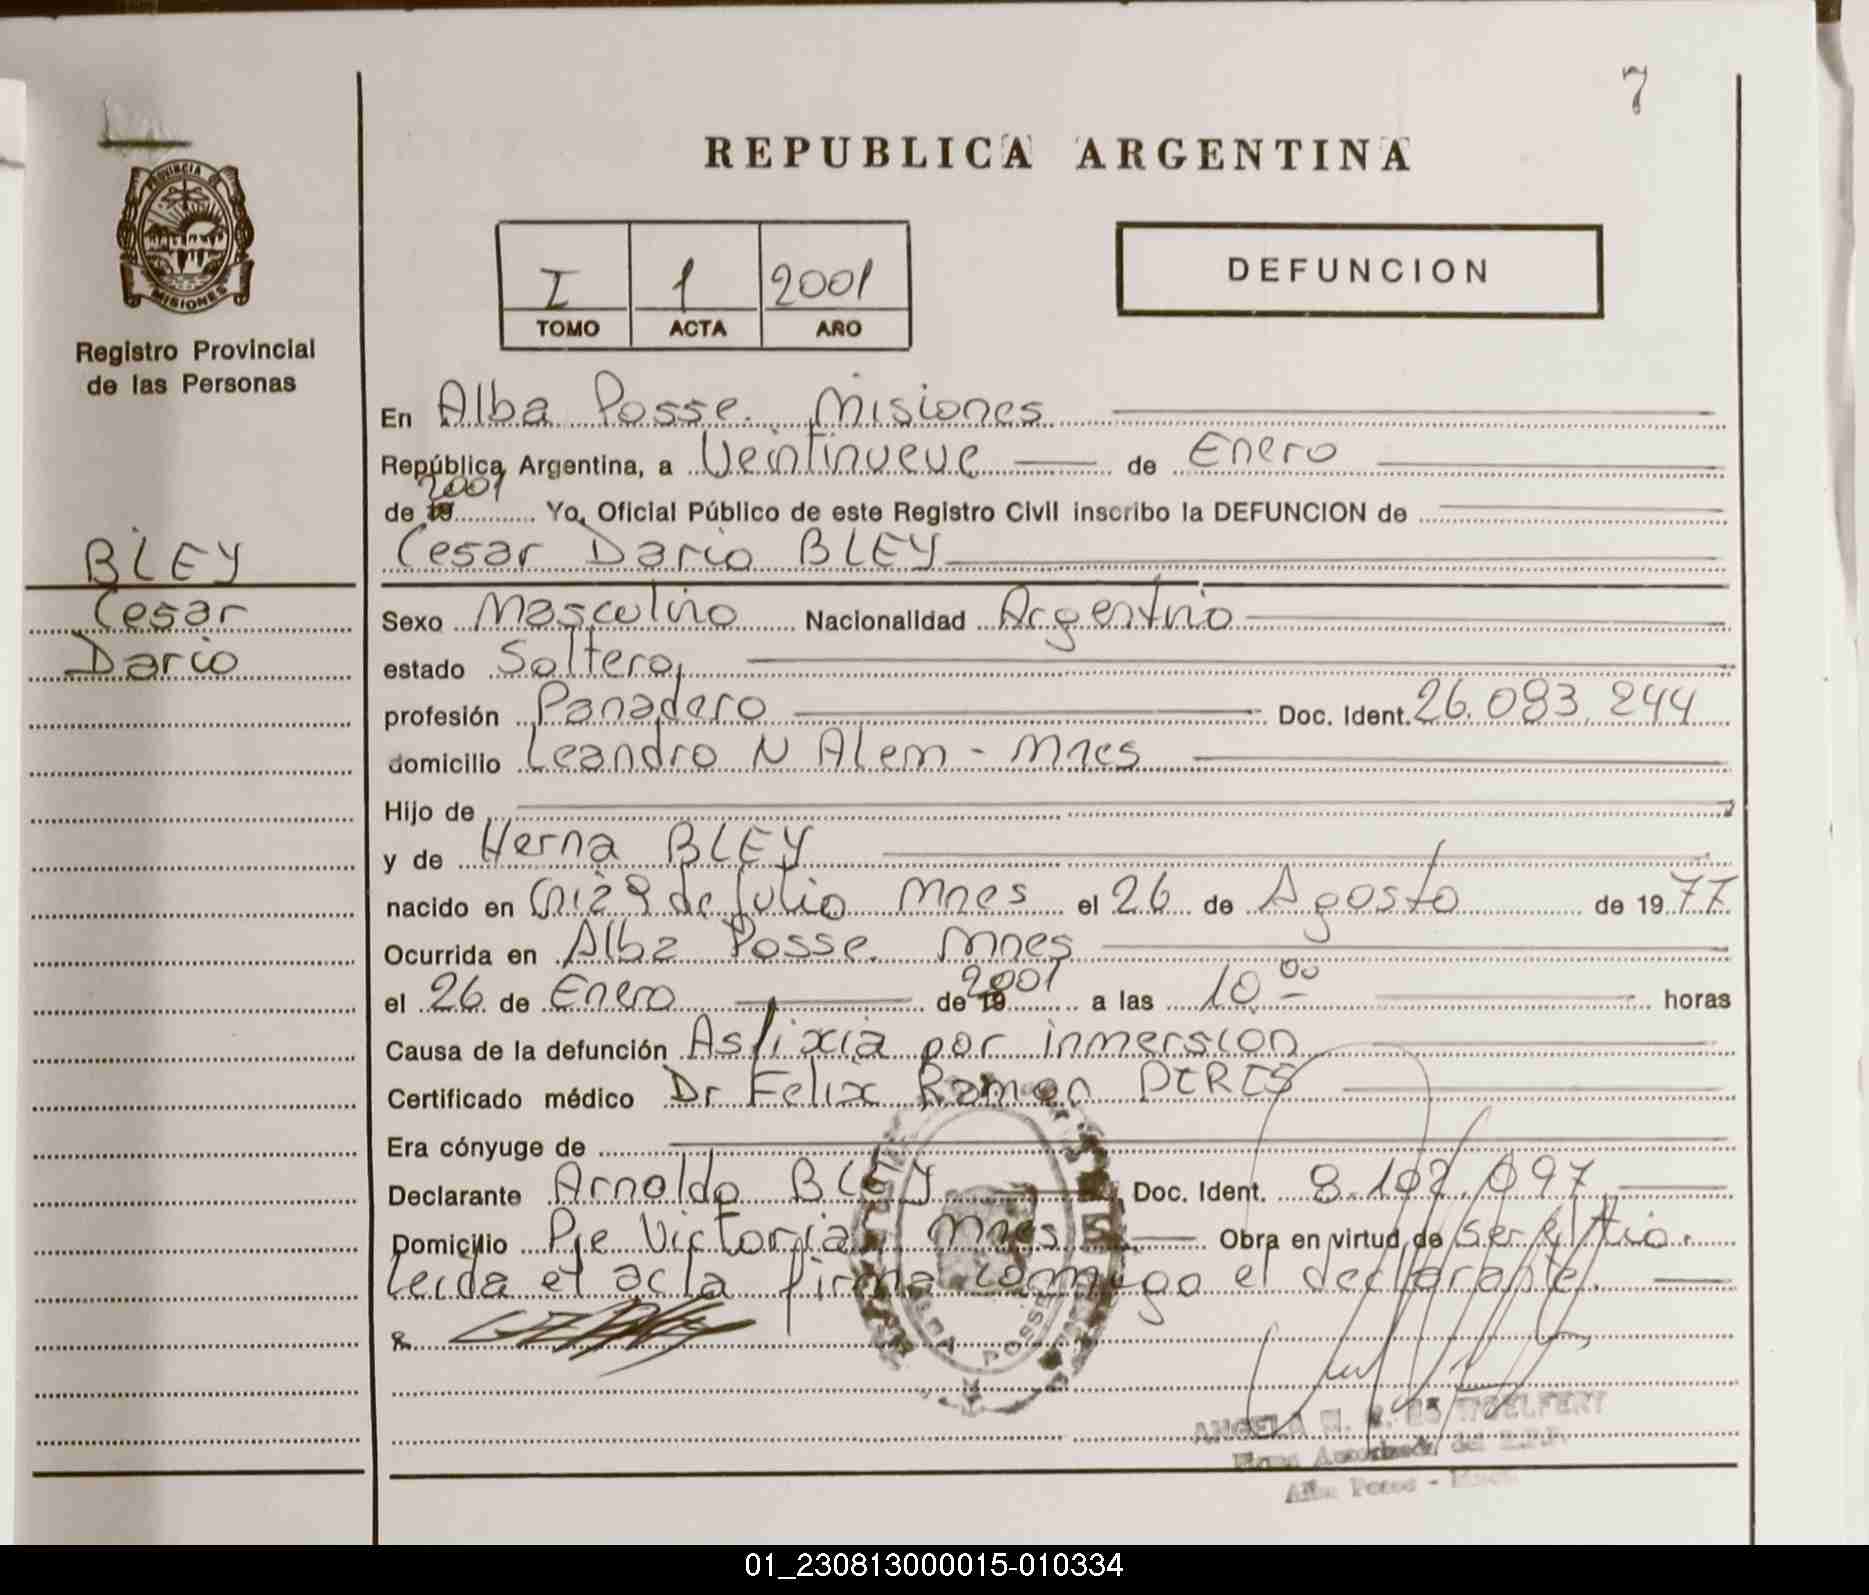 7
PROVINCIA DE
MISIONES
Registro Provincial
de las Personas
REPUBLICA ARGENTINA
I 1 2001
TOMO ACTA AÑO
DEFUNCION
BLEY
Cesar
Dario
En Alba Posse. Misiones
República Argentina, a Veintinueve de Enero
de 19 2001 Yo, Oficial Público de este Registro Civil inscribo la DEFUNCION de
Cesar Dario BLEY
Sexo Masculino Nacionalidad Argentino
estado Soltero,
profesión Panadero Doc. Ident. 26.083.244
domicilio Leandro N Alem - Mnes
Hijo de
y de Herna BLEY
nacido en 9 de Julio Mnes el 26 de Agosto de 1977
Ocurrida en Alba Posse. Mnes
el 26 de Enero de 19 2001 a las 10.00 horas
Causa de la defunción Asfixia por inmersion
Certificado médico Dr Felix Ramon
Era cónyuge de
Declarante Arnoldo BLEY Doc. Ident. 8.102.097
Domicilio Pje Victoria, Mnes Obra en virtud de ser el tio.
leida el acta firma conmigo el declarante.
ALBA POSSE
ANGELA
Alba Posse -
01_230813000015-010334